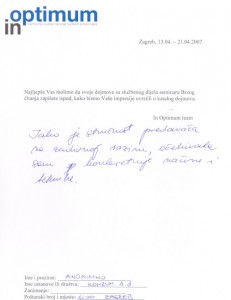 optimum
in
Zagreb, 13.04. – 21.04.2007.
Najljepše Vas molimo da svoje dojmove sa službenog dijela seminara Brzog
čitanja zapišete ispod, kako bismo Vaše impresije uvrstili u katalog dojmova.
In Optimum team
Iako je stručnost predavača
na zadivnoj razini, očekivala
sam konkretnije načine i
tehnike.
Ime i prezime: ANONIMNO
Ime ustanove ili društva:
Zanimanje:
Poštanski broj i mjesto: ZAGREB